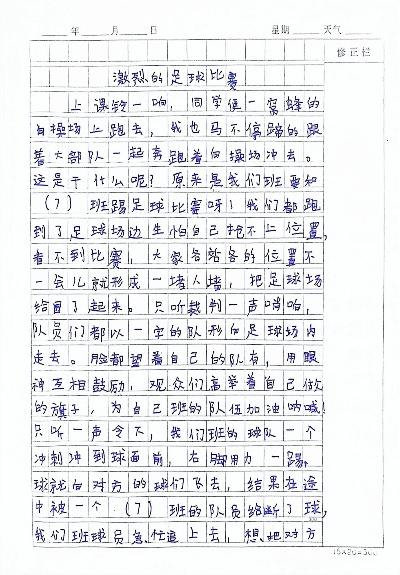 年 月 日 星期 天气
修正栏
激烈的足球比赛
上课铃一响，同学便一窝蜂的
向操场上跑去，我也马不停蹄的跟
着大部队一起奔跑着向操场冲去。
这是干什么呢？原来是我们班要和
（7）班踢足球比赛呀！我们都跑
到了足球场边生怕自己抢不上位置，
看不到比赛，大家各站各的位置不
一会儿就形成一堵人墙，把足球场
给冒了起来。只听裁判一声哨响，
队员们都以一字的队形向足球场内
走去。脸都望着自己的队友，用眼
神互相鼓励，观众们高举着自己做
的旗子，为自己班的队伍加油呐喊！
只听一声令下，我们班的球队一个
冲刺冲到球面前，右脚用力一踢，
球就向对方的球门飞去，结果在途
中被一个（7）班的队员给断了球，
我们班球员急忙追上去，想把对方
15×20=300